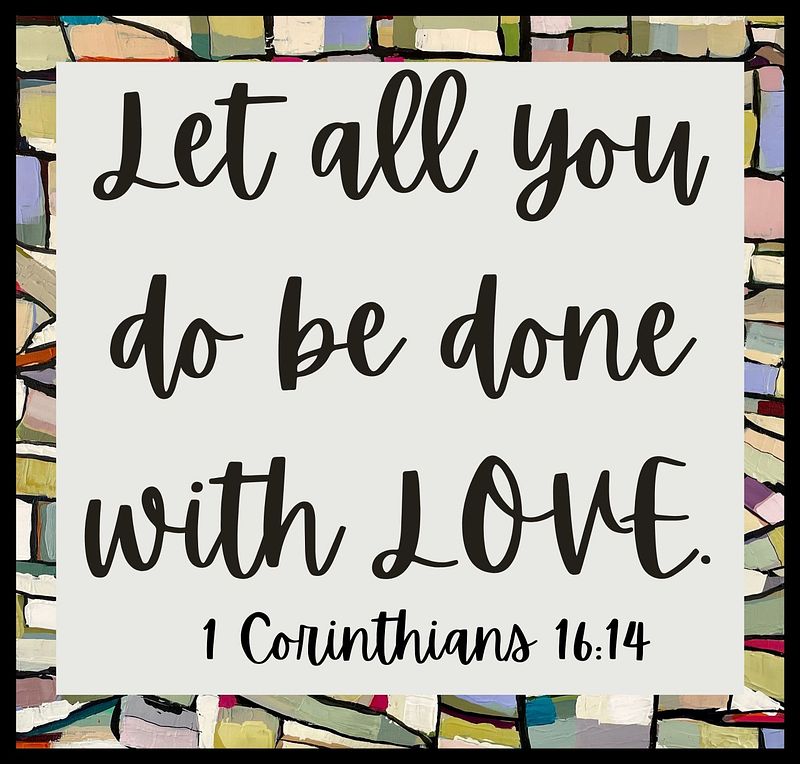 Let all you
do be done
with LOVE.
1 Corinthians 16:14